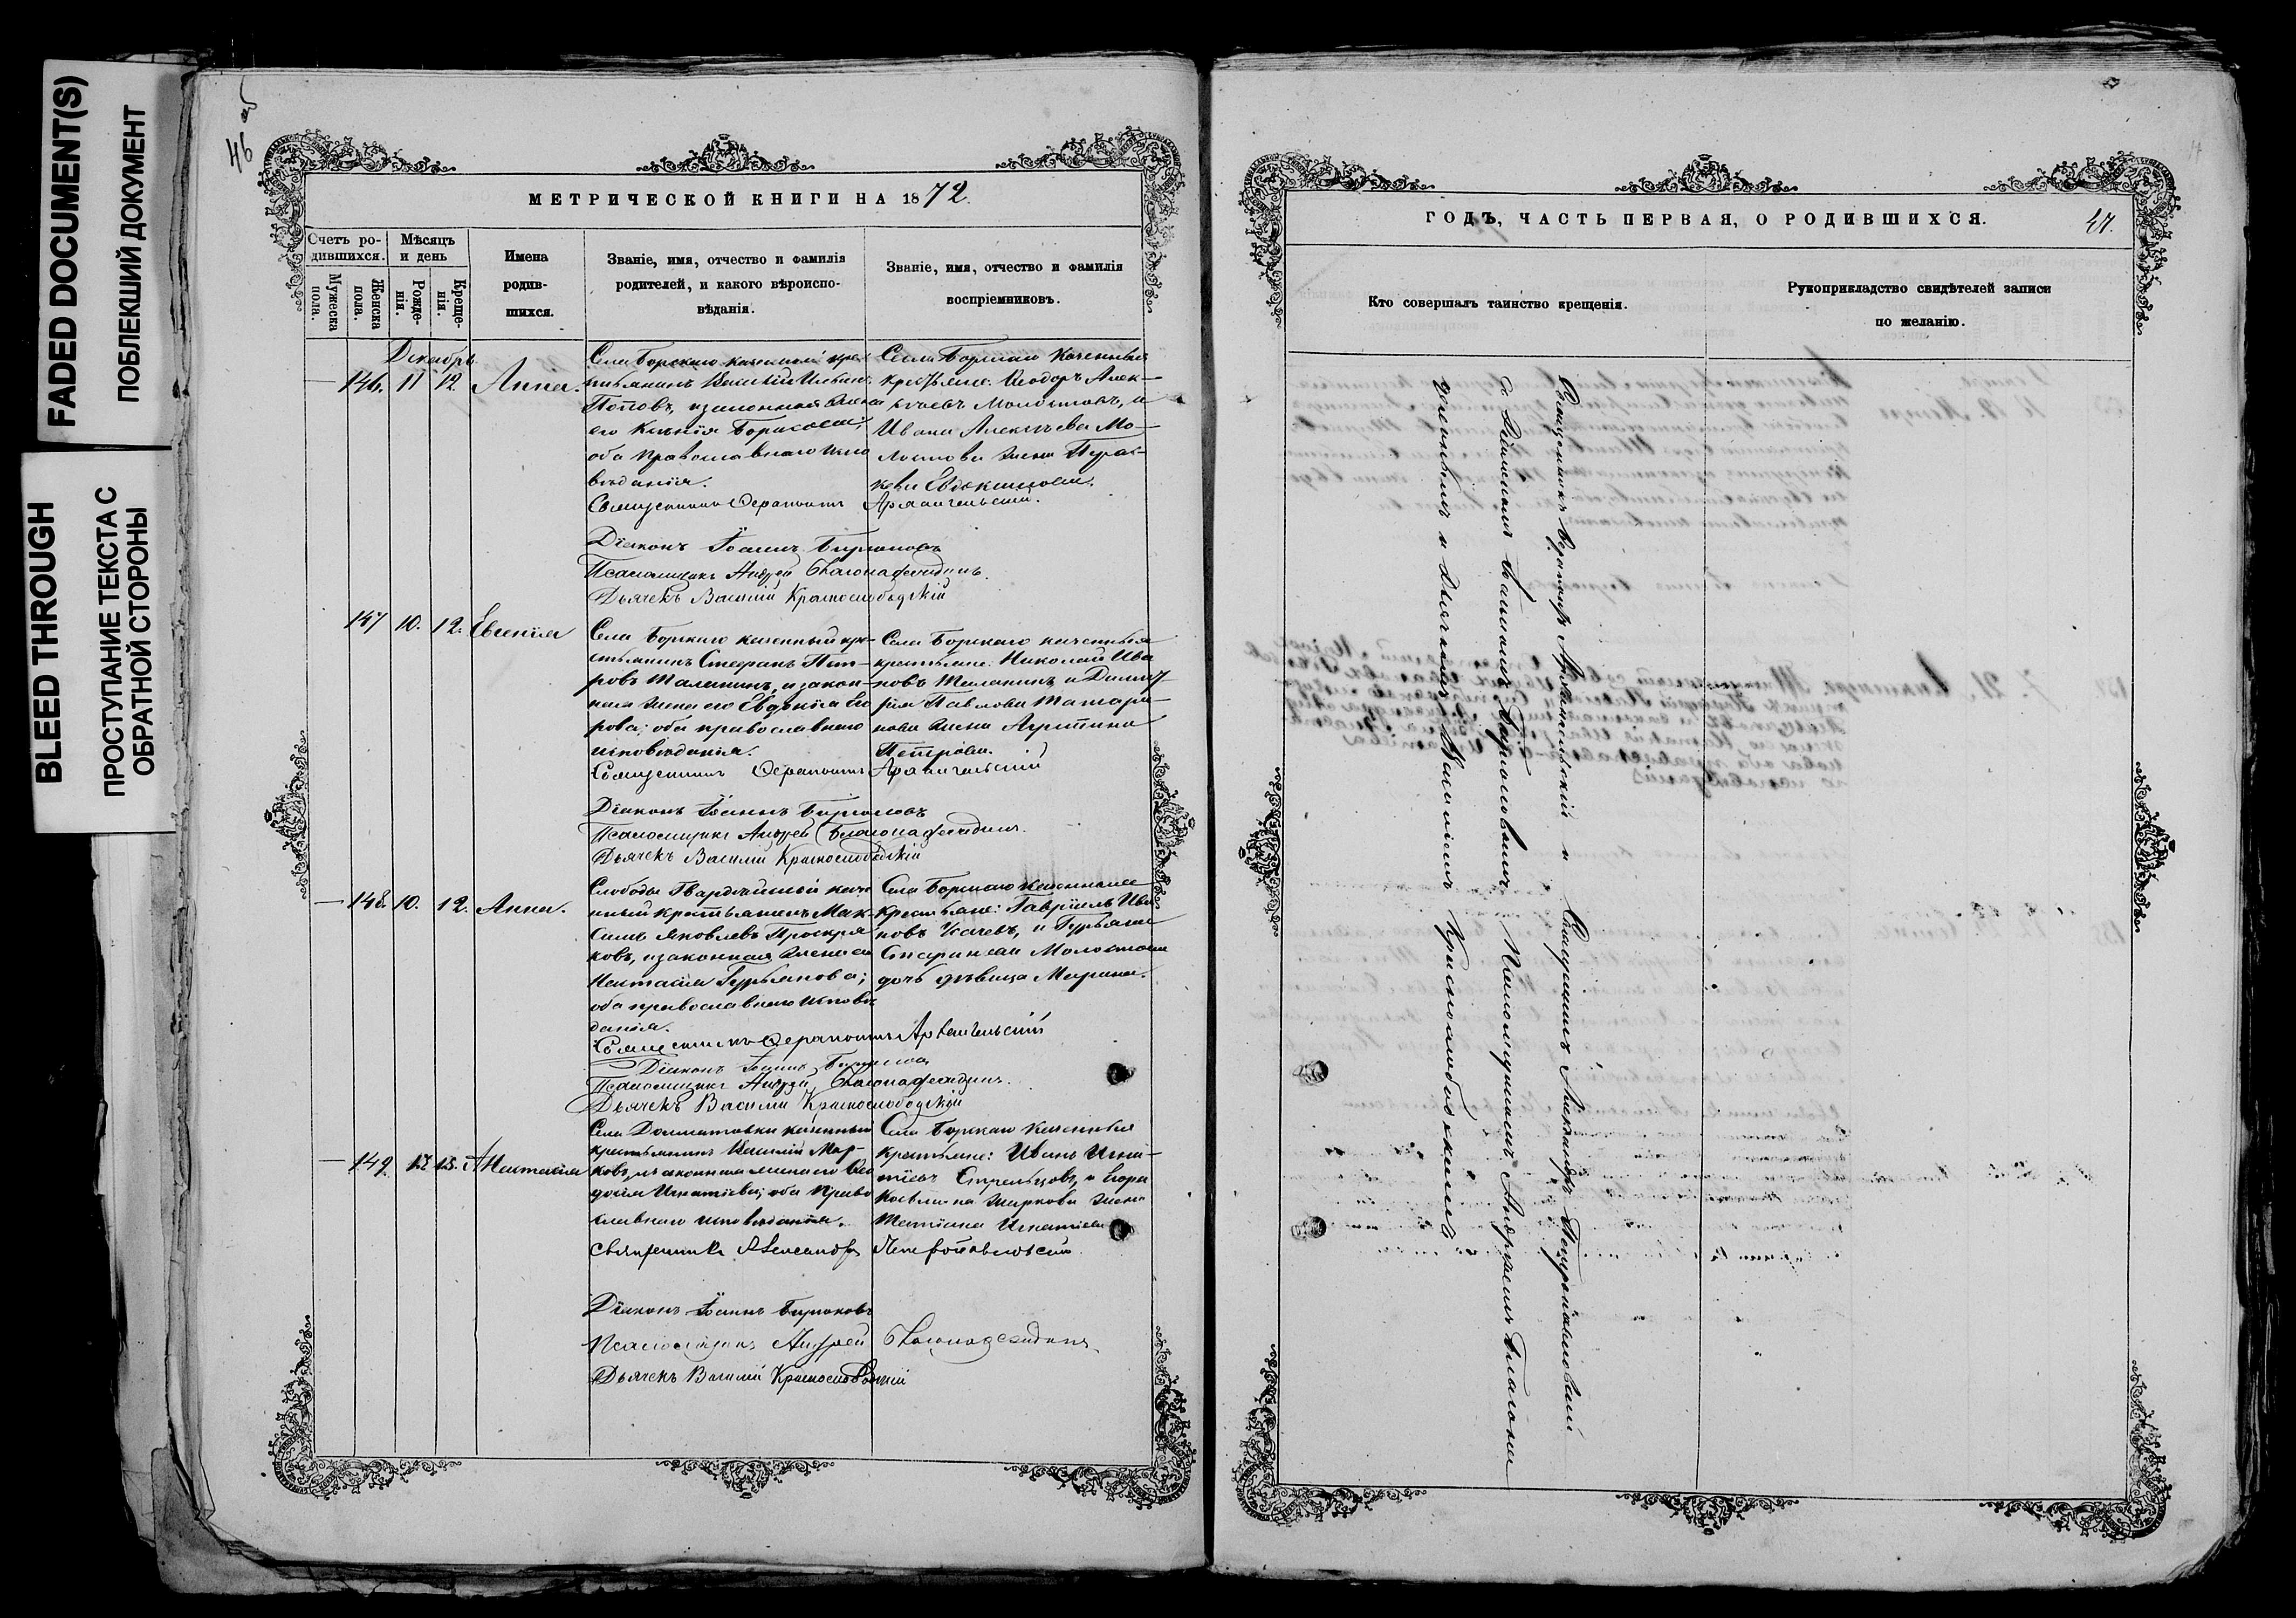 FADED DOCUMENT(S)
ПОБЛЕКШИЙ ДОКУМЕНТ
BLEED THROUGH
ПРОСТУПАНИЕ ТЕКСТА С
ОБРАТНОЙ СТОРОНЫ
46 об
МЕТРИЧЕСКОЙ КНИГИ НА 1872.
Счетъ ро-
дившихся.
Мѣсяцъ
и день
Мужеска
пола.
Женска
пола.
Рожде-
нія.
Креще-
нія.
Имена
родив-
шихся.
Званіе, имя, отчество и фамилія
родителей, и какого вѣроиспо-
вѣданія.
Званіе, имя, отчество и фамилія
воспріемниковъ.
Декабрь
146. 11 12. Анна.
Села Борскаго казенный крес
тьянинъ Василій Ильинъ
Поповъ, и законная жена
его Ксенія Борисова,
оба православнаго испо
вѣданія.
Села Борскаго казенныя
крестьяне: Ѳеодоръ Алек-
сѣевъ Молостовъ, и
Ивана Алексѣева Мо-
лостова жена Парас-
кева Евдокимова.
Священникъ Ѳерапонтъ Архангельскій.
Діаконъ Іоаннъ Бирюковъ
Псаломщикъ Андрей Благонадеждинъ.
Дьячекъ Василій Краснослободскій
147 10. 12. Евгенія
Села Борскаго казенный кре-
стьянинъ Стефанъ Пет-
ровъ Маланинъ, и закон-
ная жена его Евдокія Его
рова; оба православнаго
исповѣданія.
Села Борскаго казенныя
крестьяне: Николай Ива
новъ Маланинъ и Димит
рія Павлова Татари-
нова жена Агрипина
Петрова.
Священникъ Ѳерапонтъ Архангельскій
Діаконъ Іоаннъ Бирюковъ
Псаломщикъ Андрей Благонадеждинъ.
Дьячекъ Василій Краснослободскій
148. 10. 12. Анна.
Слободы Гвардейской казе
нный крестьянинъ Мак-
симъ Яковлевъ Проскуря
ковъ, и законная жена его
Настасія Гурьянова;
оба православнаго исповѣ
данія.
Села Борскаго казенныя
крестьяне: Гавріилъ Ива
новъ Усачевъ, и Гурьяна
Спиридонова Молостова
дочь дѣвица Марина.
Священникъ Ѳерапонтъ Архангельскій
Діаконъ Іоаннъ Бирюковъ
Псаломщикъ Андрей Благонадеждинъ.
Дьячекъ Василій Краснослободскій
149. 12 13. Анастасія
Села Долматовки казенный
крестьянинъ Василій Мар-
ковъ, и законная жена его Ѳео
досія Игнатіева; оба право
славнаго исповѣданія.
Села Борскаго казенныя
крестьяне: Иванъ Игна-
тіевъ Стрельцовъ, и
Жиркова жена
Татіана Игнатіева
Священникъ Александръ Петропавловскій.
Діаконъ Іоаннъ Бирюковъ
Псаломщикъ Андрей Благонадеждинъ
Дьячекъ Василій Краснослободскій
ГОДЪ, ЧАСТЬ ПЕРВАЯ, О РОДИВШИХСЯ.
47.
Кто совершалъ таинство крещенія.
Рукоприкладство свидѣтелей записи
по желанію.
Священникъ Ѳерапонтъ Архангельскій и Священникъ Александръ Петропавловскій
съ Діакономъ Іоанномъ Бирюковымъ, Псаломщикомъ Андреемъ Благона
деждинымъ и Дьячкомъ Василіемъ Краснослободскимъ